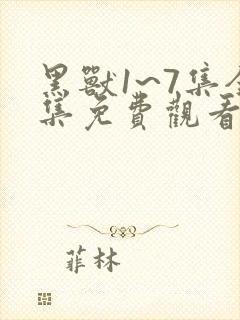 黑獸1~7集全
集免費觀看
菲林